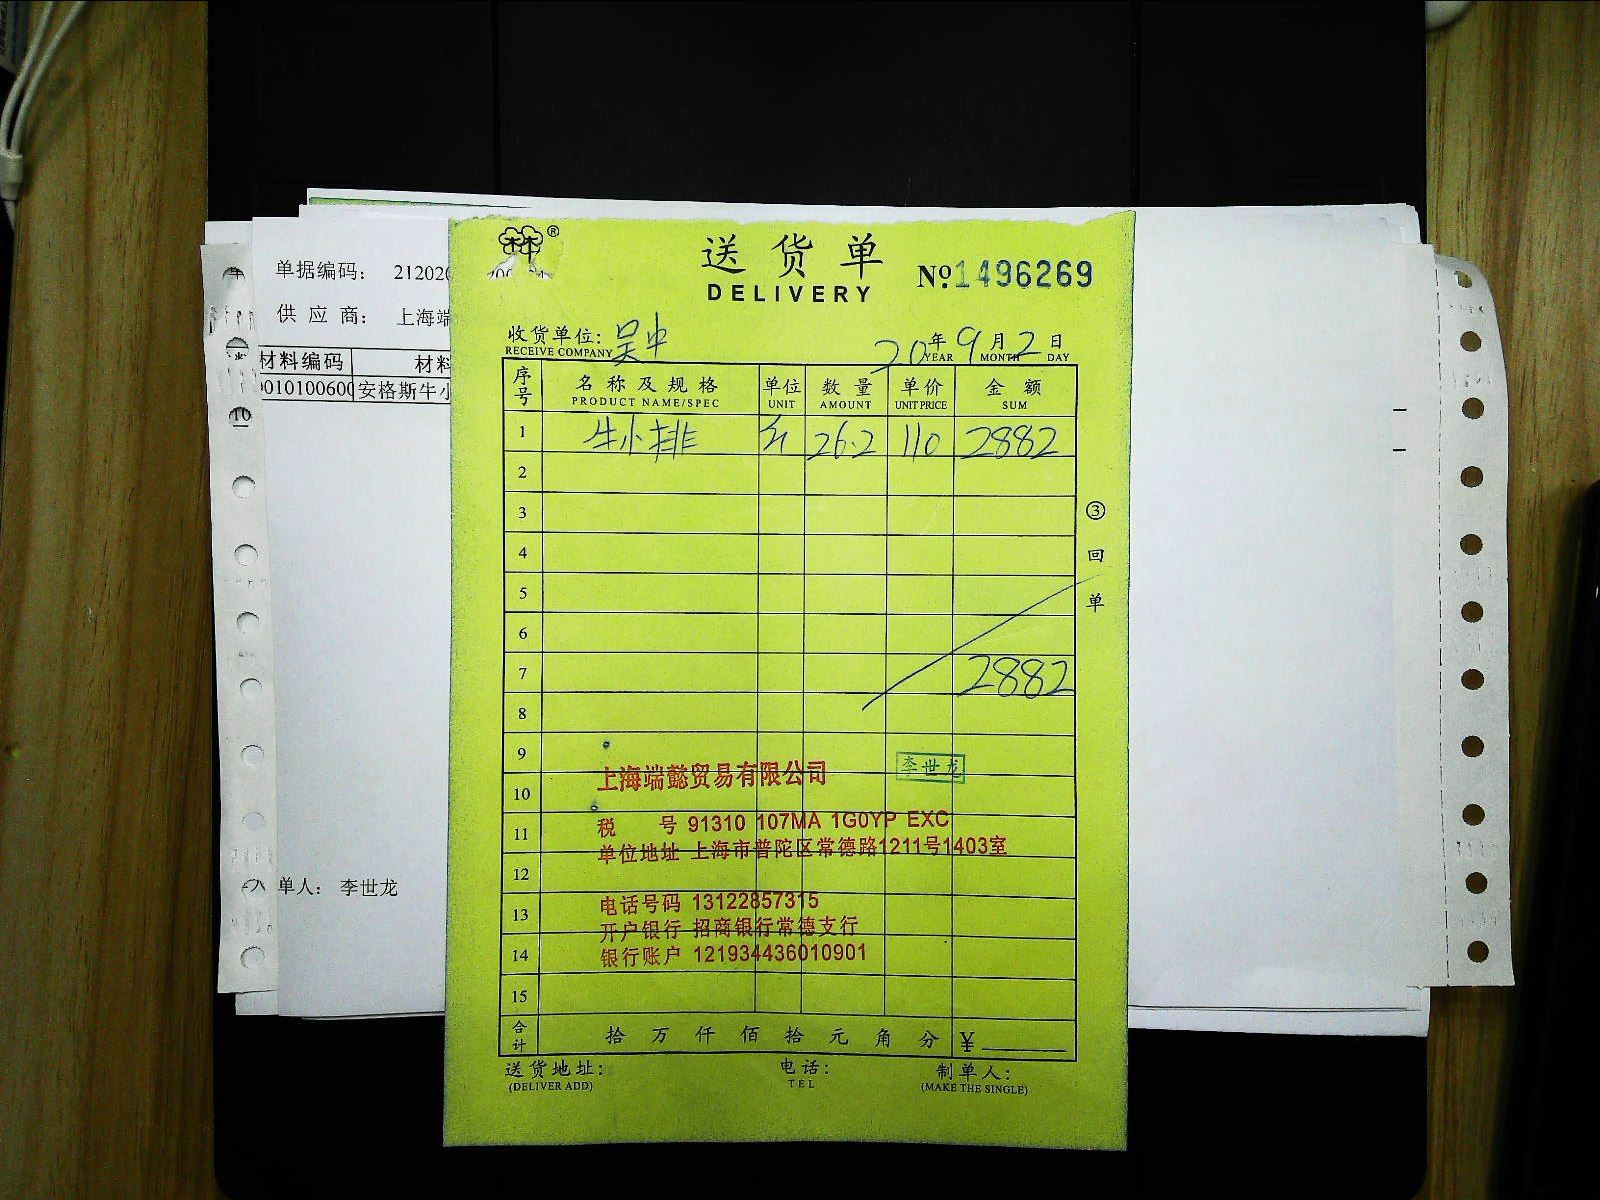 单据编码： 21202
供 应 商： 上海端
材料编码 材料
010100600 安格斯牛小
单人： 李世龙
林®
送 货 单
DELIVERY
№1496269
收货单位： 吴中
RECEIVE COMPANY
20 年 9 月 2 日
YEAR MONTH DAY
序号 名 称 及 规 格 单位 数 量 单价 金 额
PRODUCT NAME/SPEC UNIT AMOUNT UNIT PRICE SUM
1 牛小排 斤 26.2 110 2882
2
3
4
5
6
7 2882
8
9
10
11
12
13
14
15
③回单
上海端懿贸易有限公司
李世龙
税 号 91310 107MA 1G0YP EXC
单位地址 上海市普陀区常德路1211号1403室
电话号码 13122857315
开户银行 招商银行常德支行
银行账户 121934436010901
合计 拾 万 仟 佰 拾 元 角 分 ￥
送货地址： 电话： 制单人：
(DELIVER ADD) TEL (MAKE THE SINGLE)